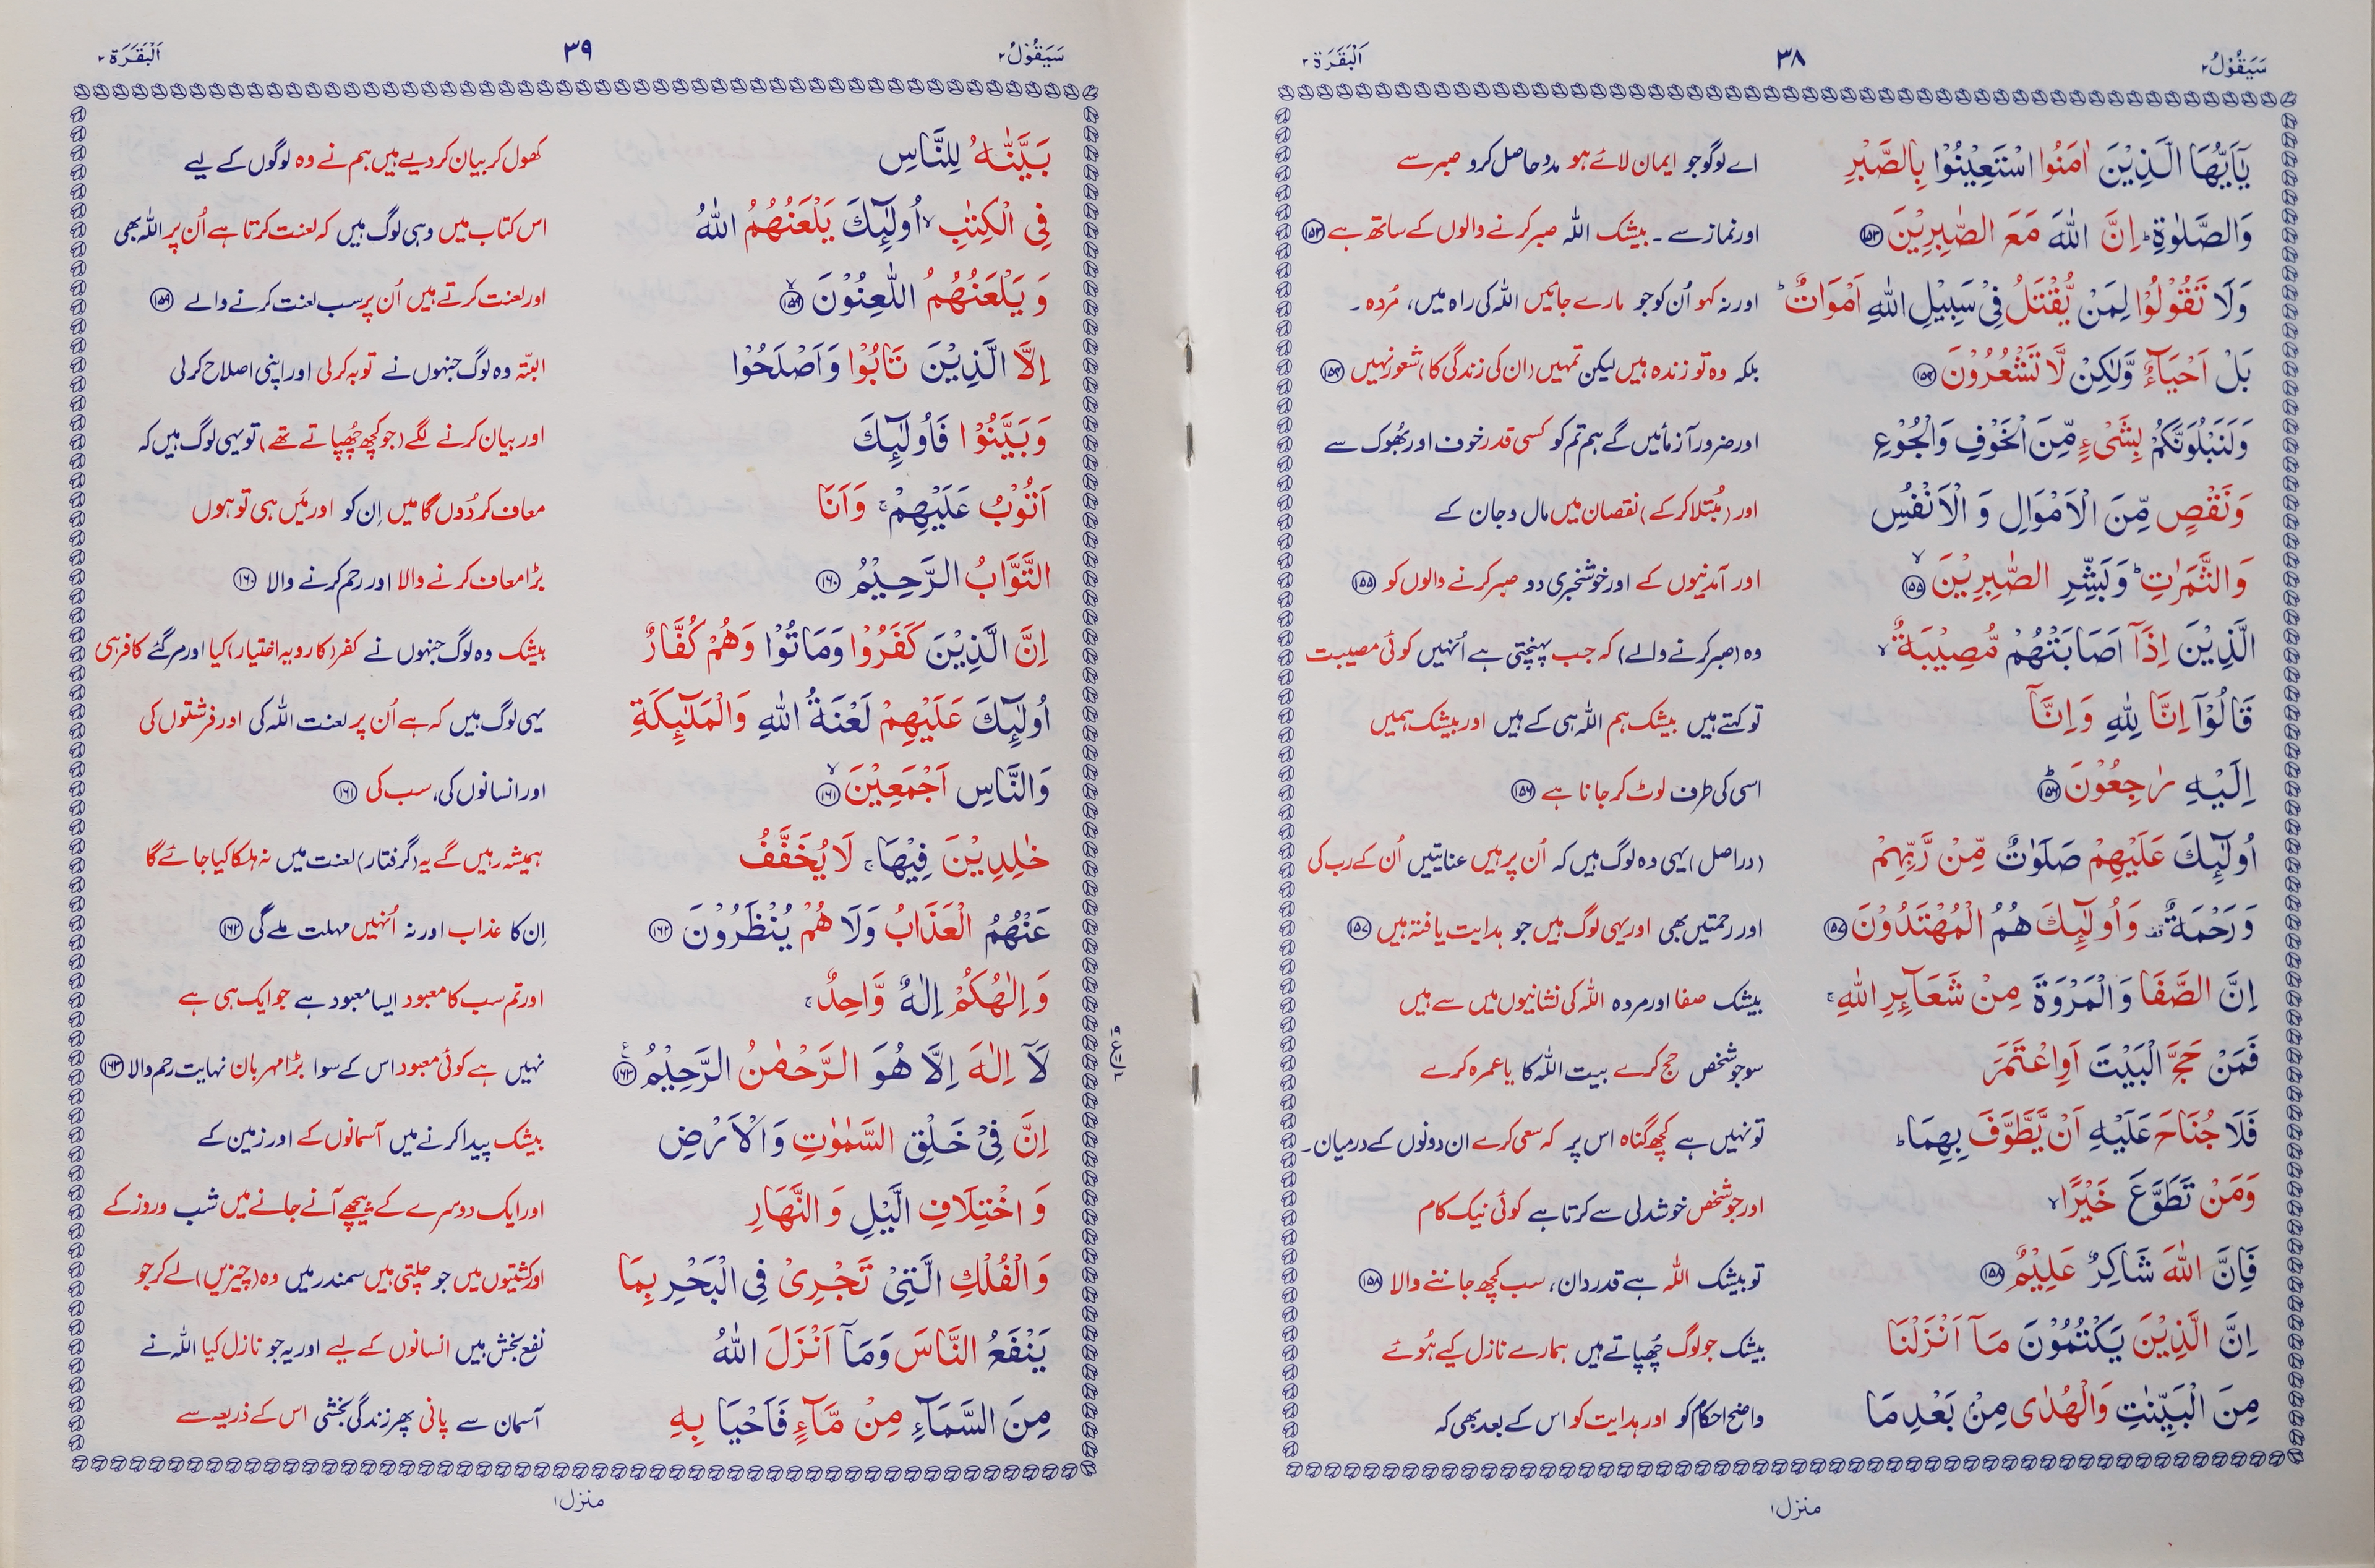 سَيَقُوْلُ ٢
٣٨
اَلْبَقَرَة ٢
يٰٓاَيُّهَا الَّذِيْنَ اٰمَنُوا اسْتَعِيْنُوْا بِالصَّبْرِ اے لوگو جو ایمان لائے ہو مدد حاصل کرو صبر سے
وَالصَّلٰوةِ ؕ اِنَّ اللّٰهَ مَعَ الصّٰبِرِيْنَ ﴿١٥٣﴾ اور نماز سے ۔ بیشک اللہ صبر کرنے والوں کے ساتھ ہے ﴿١٥٣﴾
وَلَا تَقُوْلُوْا لِمَنْ يُّقْتَلُ فِيْ سَبِيْلِ اللّٰهِ اَمْوَاتٌ ؕ اور نہ کہو اُن کو جو مارے جائیں اللہ کی راہ میں، مُردہ ۔
بَلْ اَحْيَآءٌ وَّلٰكِنْ لَّا تَشْعُرُوْنَ ﴿١٥٤﴾ بلکہ وہ تو زندہ ہیں لیکن تمہیں (ان کی زندگی کا) شعور نہیں ﴿١٥٤﴾
وَلَنَبْلُوَنَّكُمْ بِشَيْءٍ مِّنَ الْخَوْفِ وَالْجُوْعِ اور ضرور آزمائیں گے ہم تم کو کسی قدر خوف اور بھُوک سے
وَنَقْصٍ مِّنَ الْاَمْوَالِ وَ الْاَنْفُسِ اور (مُبتلا کر کے) نقصان میں مال و جان کے
وَالثَّمَرٰتِ ؕ وَبَشِّرِ الصّٰبِرِيْنَ ﴿١٥٥﴾ ۙ اور آمدنیوں کے اور خوشخبری دو صبر کرنے والوں کو ﴿١٥٥﴾
الَّذِيْنَ اِذَآ اَصَابَتْهُمْ مُّصِيْبَةٌ ۙ وہ (صبر کرنے والے) کہ جب پہنچتی ہے اُنہیں کوئی مصیبت
قَالُوْٓا اِنَّا لِلّٰهِ وَاِنَّآ تو کہتے ہیں بیشک ہم اللہ ہی کے ہیں اور بیشک ہمیں
اِلَيْهِ رٰجِعُوْنَ ﴿١٥٦﴾ ؕ اسی کی طرف لوٹ کر جانا ہے ﴿١٥٦﴾
اُولٰٓئِكَ عَلَيْهِمْ صَلَوٰتٌ مِّنْ رَّبِّهِمْ (دراصل) یہی وہ لوگ ہیں کہ اُن پر ہیں عنایتیں اُن کے رب کی
وَرَحْمَةٌ ۟ وَاُولٰٓئِكَ هُمُ الْمُهْتَدُوْنَ ﴿١٥٧﴾ اور رحمتیں بھی اور یہی لوگ ہیں جو ہدایت یافتہ ہیں ﴿١٥٧﴾
اِنَّ الصَّفَا وَالْمَرْوَةَ مِنْ شَعَآئِرِ اللّٰهِ ۚ بیشک صفا اور مروہ اللہ کی نشانیوں میں سے ہیں
فَمَنْ حَجَّ الْبَيْتَ اَوِاعْتَمَرَ سو جو شخص حج کرے بیت اللہ کا یا عمرہ کرے
فَلَا جُنَاحَ عَلَيْهِ اَنْ يَّطَّوَّفَ بِهِمَا ؕ تو نہیں ہے کچھ گناہ اس پر کہ سعی کرے ان دونوں کے درمیان ۔
وَمَنْ تَطَوَّعَ خَيْرًا ۙ اور جو شخص خوشدلی سے کرتا ہے کوئی نیک کام
فَاِنَّ اللّٰهَ شَاكِرٌ عَلِيْمٌ ﴿١٥٨﴾ تو بیشک اللہ ہے قدردان، سب کچھ جاننے والا ﴿١٥٨﴾
اِنَّ الَّذِيْنَ يَكْتُمُوْنَ مَآ اَنْزَلْنَا بیشک جو لوگ چُھپاتے ہیں ہمارے نازل کیے ہُوئے
مِنَ الْبَيِّنٰتِ وَالْهُدٰى مِنْ بَعْدِ مَا واضح احکام کو اور ہدایت کو اس کے بعد بھی کہ
منزل ١
سَيَقُوْلُ ٢
٣٩
اَلْبَقَرَة ٢
بَيَّنّٰهُ لِلنَّاسِ کھول کر بیان کر دیے ہیں ہم نے وہ لوگوں کے لیے
فِي الْكِتٰبِ ۙ اُولٰٓئِكَ يَلْعَنُهُمُ اللّٰهُ اس کتاب میں وہی لوگ ہیں کہ لعنت کرتا ہے اُن پر اللہ بھی
وَ يَلْعَنُهُمُ اللّٰعِنُوْنَ ﴿١٥٩﴾ ۙ اور لعنت کرتے ہیں اُن پر سب لعنت کرنے والے ﴿١٥٩﴾
اِلَّا الَّذِيْنَ تَابُوْا وَاَصْلَحُوْا البتّہ وہ لوگ جنہوں نے توبہ کر لی اور اپنی اصلاح کر لی
وَبَيَّنُوْا فَاُولٰٓئِكَ اور بیان کرنے لگے (جو کچھ چُھپاتے تھے) تو یہی لوگ ہیں کہ
اَتُوْبُ عَلَيْهِمْ ۚ وَاَنَا معاف کر دُوں گا میں اِن کو اور مَیں ہی تو ہوں
التَّوَّابُ الرَّحِيْمُ ﴿١٦٠﴾ بڑا معاف کرنے والا اور رحم کرنے والا ﴿١٦٠﴾
اِنَّ الَّذِيْنَ كَفَرُوْا وَمَاتُوْا وَهُمْ كُفَّارٌ بیشک وہ لوگ جنہوں نے کفر (کا رویہ اختیار) کیا اور مر گئے کافر ہی
اُولٰٓئِكَ عَلَيْهِمْ لَعْنَةُ اللّٰهِ وَالْمَلٰٓئِكَةِ یہی لوگ ہیں کہ ہے اُن پر لعنت اللہ کی اور فرشتوں کی
وَالنَّاسِ اَجْمَعِيْنَ ﴿١٦١﴾ ۙ اور انسانوں کی، سب کی ﴿١٦١﴾
خٰلِدِيْنَ فِيْهَا ۚ لَا يُخَفَّفُ ہمیشہ رہیں گے یہ (گرفتار) لعنت میں نہ ہلکا کیا جائے گا
عَنْهُمُ الْعَذَابُ وَلَا هُمْ يُنْظَرُوْنَ ﴿١٦٢﴾ اِن کا عذاب اور نہ اُنہیں مہلت ملے گی ﴿١٦٢﴾
وَاِلٰهُكُمْ اِلٰهٌ وَّاحِدٌ ۚ اور تم سب کا معبود ایسا معبود ہے جو ایک ہی ہے
لَآ اِلٰهَ اِلَّا هُوَ الرَّحْمٰنُ الرَّحِيْمُ ﴿١٦٣﴾ ع نہیں ہے کوئی معبود اس کے سوا بڑا مہربان نہایت رحم والا ﴿١٦٣﴾
اِنَّ فِيْ خَلْقِ السَّمٰوٰتِ وَالْاَرْضِ بیشک پیدا کرنے میں آسمانوں کے اور زمین کے
وَ اخْتِلَافِ الَّيْلِ وَ النَّهَارِ اور ایک دوسرے کے پیچھے آنے جانے میں شب و روز کے
وَالْفُلْكِ الَّتِيْ تَجْرِيْ فِي الْبَحْرِ بِمَا اور کشتیوں میں جو چلتی ہیں سمندر میں وہ (چیزیں) لے کر جو
يَنْفَعُ النَّاسَ وَمَآ اَنْزَلَ اللّٰهُ نفع بخش ہیں انسانوں کے لیے اور یہ جو نازل کیا اللہ نے
مِنَ السَّمَآءِ مِنْ مَّآءٍ فَاَحْيَا بِهِ آسمان سے پانی پھر زندگی بخشی اس کے ذریعہ سے
منزل ١